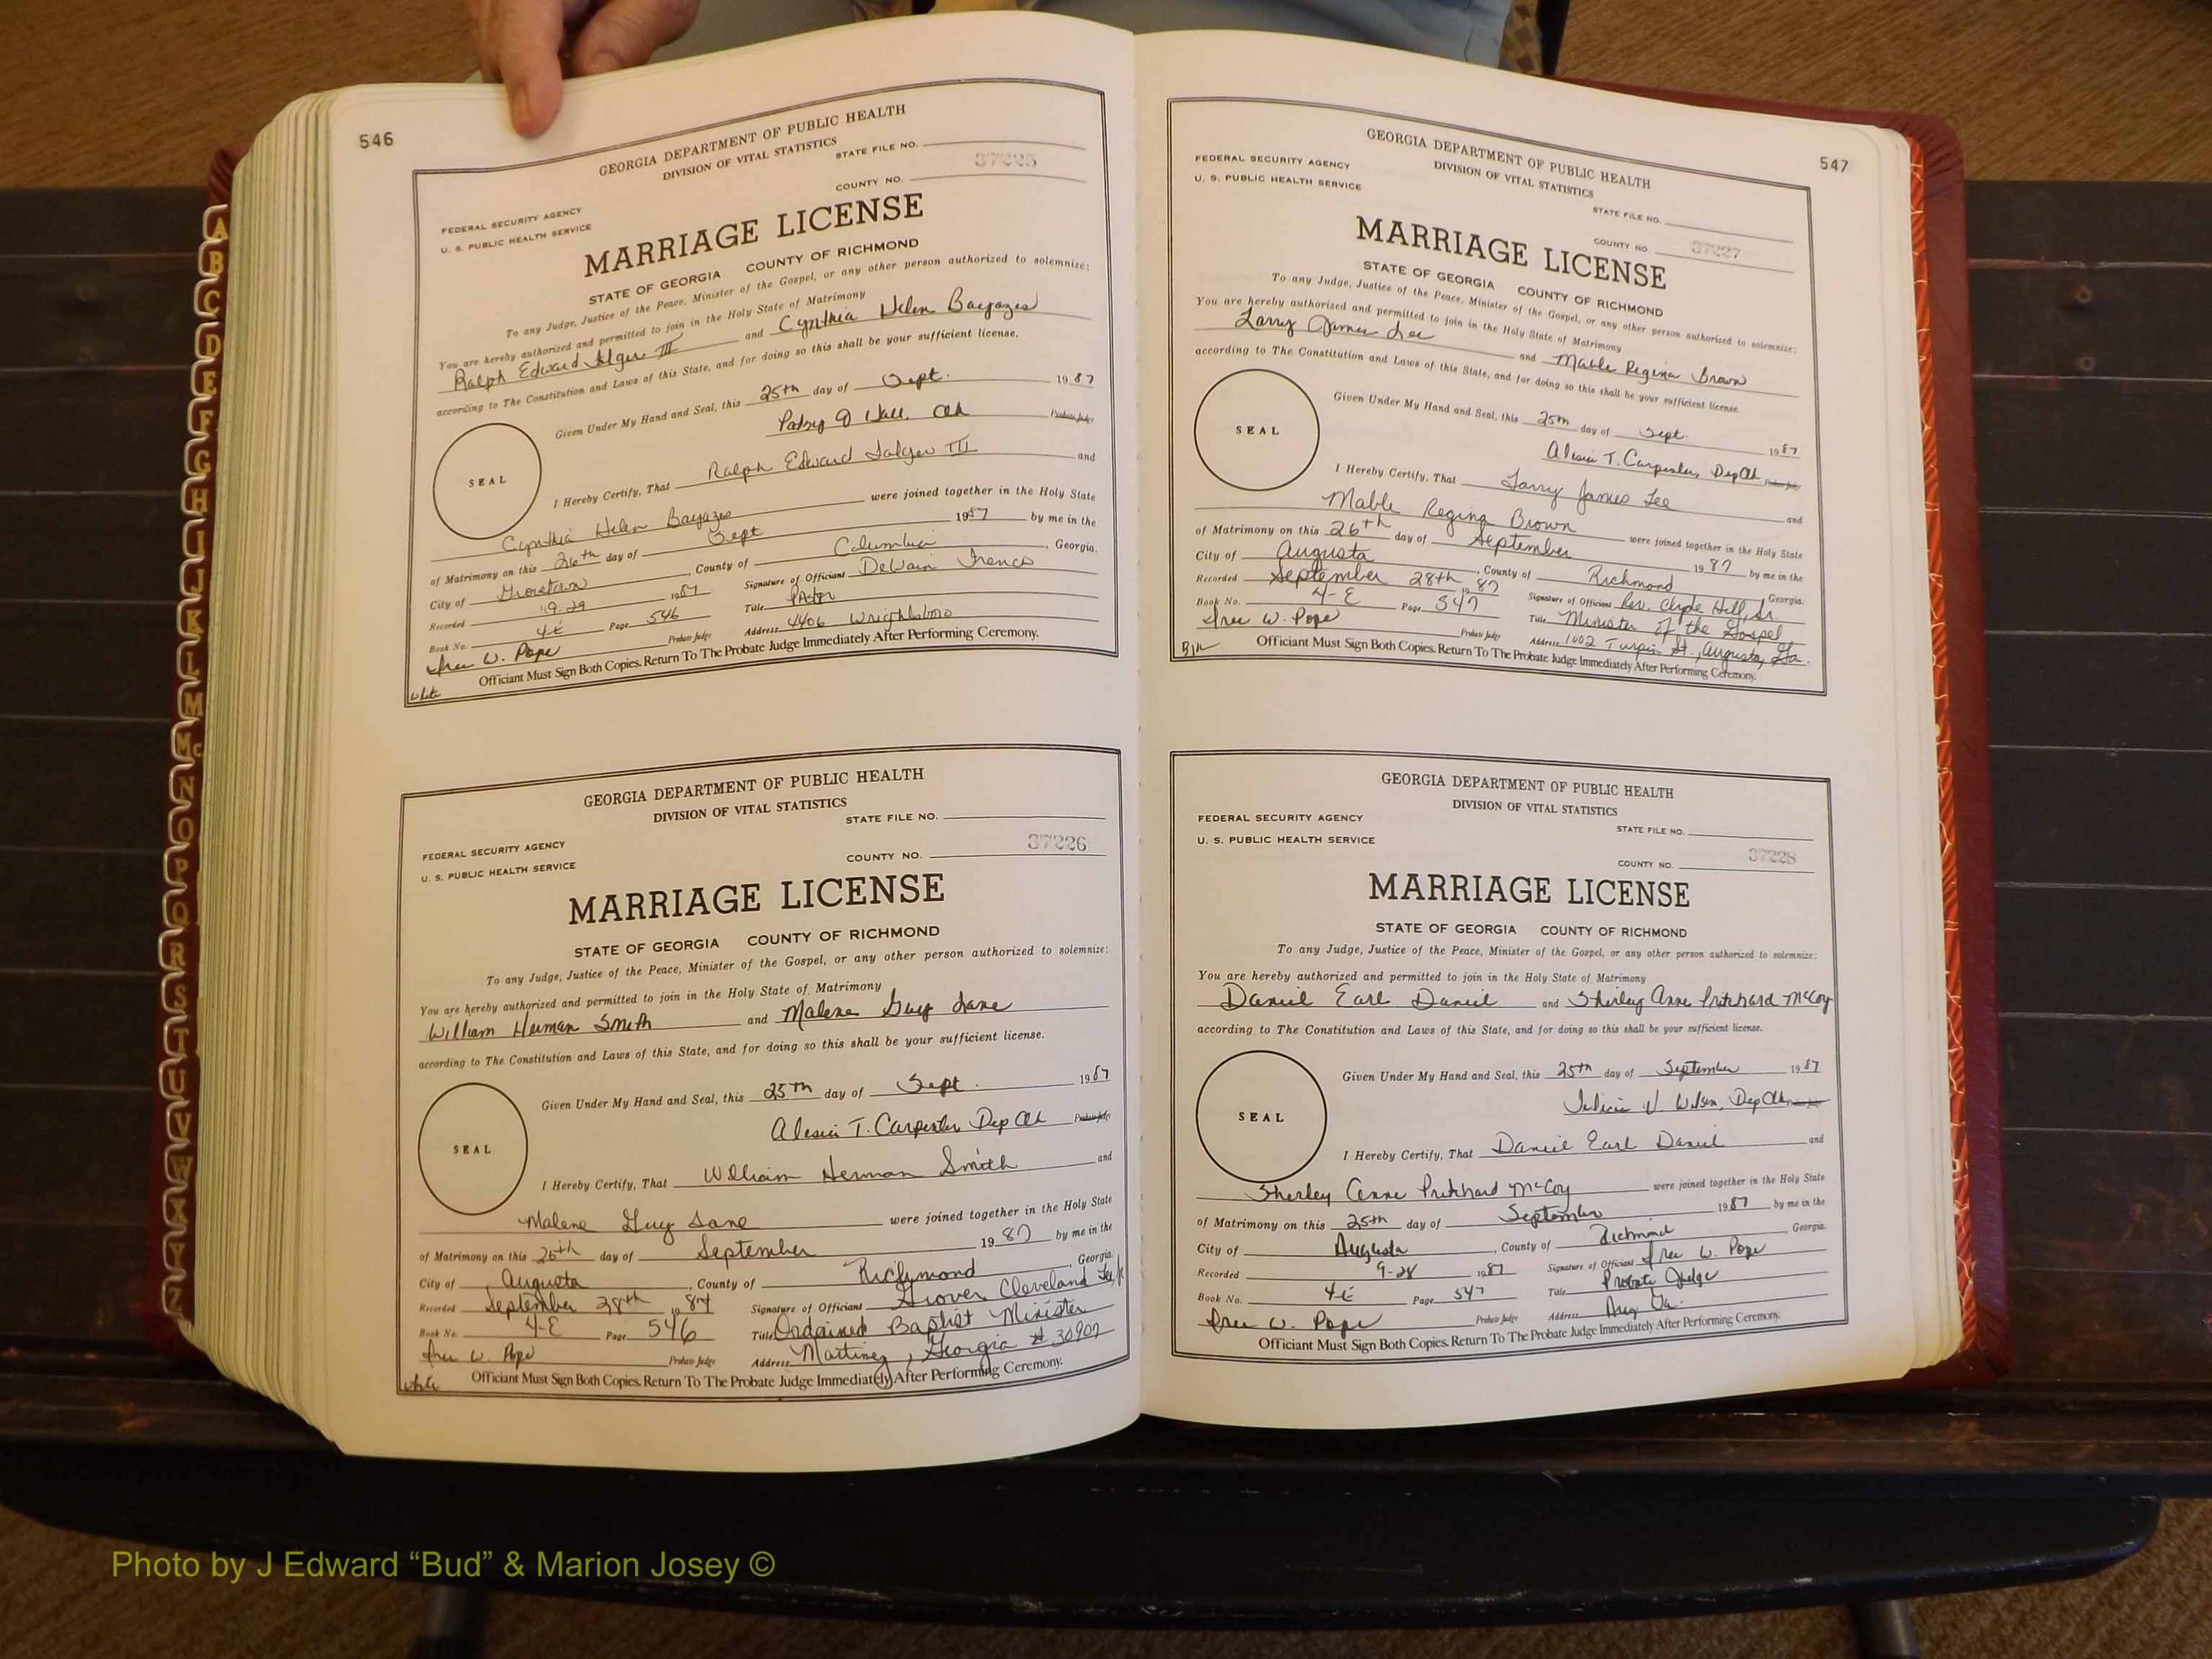 546
GEORGIA DEPARTMENT OF PUBLIC HEALTH
DIVISION OF VITAL STATISTICS
STATE FILE NO.
37225
COUNTY NO.
FEDERAL SECURITY AGENCY
U. S. PUBLIC HEALTH SERVICE
MARRIAGE LICENSE
STATE OF GEORGIA COUNTY OF RICHMOND
To any Judge, Justice of the Peace, Minister of the Gospel, or any other person authorized to solemnize:
You are hereby authorized and permitted to join in the Holy State of Matrimony
Ralph Edward III and Cynthia Helen
according to The Constitution and Laws of this State, and for doing so this shall be your sufficient license.
Given Under My Hand and Seal, this 25th day of Sept. 1987
Clk Probate Judge
SEAL
I Hereby Certify, That Ralph Edward III and
Cynthia Helen were joined together in the Holy State
of Matrimony on this 26th day of Sept 1987 by me in the
City of Grovetown, County of Columbia, Georgia.
Recorded 9-29 1987 Signature of Officiant DeWain
Book No. 4-E Page 546 Title Pastor
W. Pope Probate Judge Address 4406 Wrightsboro
Officiant Must Sign Both Copies. Return To The Probate Judge Immediately After Performing Ceremony.
white
GEORGIA DEPARTMENT OF PUBLIC HEALTH
DIVISION OF VITAL STATISTICS
STATE FILE NO.
37226
FEDERAL SECURITY AGENCY
COUNTY NO.
U. S. PUBLIC HEALTH SERVICE
MARRIAGE LICENSE
STATE OF GEORGIA COUNTY OF RICHMOND
To any Judge, Justice of the Peace, Minister of the Gospel, or any other person authorized to solemnize:
You are hereby authorized and permitted to join in the Holy State of Matrimony
William Herman Smith and Malene Guy Lane
according to The Constitution and Laws of this State, and for doing so this shall be your sufficient license.
Given Under My Hand and Seal, this 25th day of Sept. 1987
Alesia T. Carpenter Dep Clk Probate Judge
SEAL
I Hereby Certify, That William Herman Smith and
Malene Guy Lane were joined together in the Holy State
of Matrimony on this 26th day of September 1987 by me in the
City of Augusta, County of Richmond, Georgia.
Recorded September 28th 1987 Signature of Officiant Grover Cleveland
Book No. 4-E Page 546 Title Ordained Baptist Minister
W. Pope Probate Judge Address Martinez, Georgia # 30907
Officiant Must Sign Both Copies. Return To The Probate Judge Immediately After Performing Ceremony.
white
547
GEORGIA DEPARTMENT OF PUBLIC HEALTH
FEDERAL SECURITY AGENCY
DIVISION OF VITAL STATISTICS
U. S. PUBLIC HEALTH SERVICE
STATE FILE NO.
COUNTY NO. 37227
MARRIAGE LICENSE
STATE OF GEORGIA COUNTY OF RICHMOND
To any Judge, Justice of the Peace, Minister of the Gospel, or any other person authorized to solemnize:
You are hereby authorized and permitted to join in the Holy State of Matrimony
Larry James Lee and Mable Regina Brown
according to The Constitution and Laws of this State, and for doing so this shall be your sufficient license.
Given Under My Hand and Seal, this 25th day of Sept. 1987
Alesia T. Carpenter, Dep Clk Probate Judge
SEAL
I Hereby Certify, That Larry James Lee and
Mable Regina Brown were joined together in the Holy State
of Matrimony on this 26th day of September 1987 by me in the
City of Augusta, County of Richmond Georgia.
Recorded September 28th, 1987 Signature of Officiant Rev. Clyde Hill, Sr.
Book No. 4-E Page 547 Title Minister of the Gospel
W. Pope Probate Judge Address 1002 Turpin St., Augusta, Ga.
Officiant Must Sign Both Copies. Return To The Probate Judge Immediately After Performing Ceremony.
GEORGIA DEPARTMENT OF PUBLIC HEALTH
DIVISION OF VITAL STATISTICS
FEDERAL SECURITY AGENCY
STATE FILE NO.
U. S. PUBLIC HEALTH SERVICE
37228
COUNTY NO.
MARRIAGE LICENSE
STATE OF GEORGIA COUNTY OF RICHMOND
To any Judge, Justice of the Peace, Minister of the Gospel, or any other person authorized to solemnize:
You are hereby authorized and permitted to join in the Holy State of Matrimony
Daniel Earl Daniel and Shirley Anne Pritchard McCoy
according to The Constitution and Laws of this State, and for doing so this shall be your sufficient license.
Given Under My Hand and Seal, this 25th day of September 1987
Dep Clk Probate Judge
SEAL
I Hereby Certify, That Daniel Earl Daniel and
Shirley Anne Pritchard McCoy were joined together in the Holy State
of Matrimony on this 25th day of September 1987 by me in the
City of Augusta, County of Richmond Georgia.
Recorded 9-28 1987 Signature of Officiant W. Pope
Book No. 4-E Page 547 Title Probate Judge
W. Pope Probate Judge Address Aug. Ga.
Officiant Must Sign Both Copies. Return To The Probate Judge Immediately After Performing Ceremony.
A
B
C
D
E
F
G
H
I
J
K
L
M
Mc
N
O
P
Q
R
S
T
U
V
W
X
Y
Z
Photo by J Edward “Bud” & Marion Josey ©